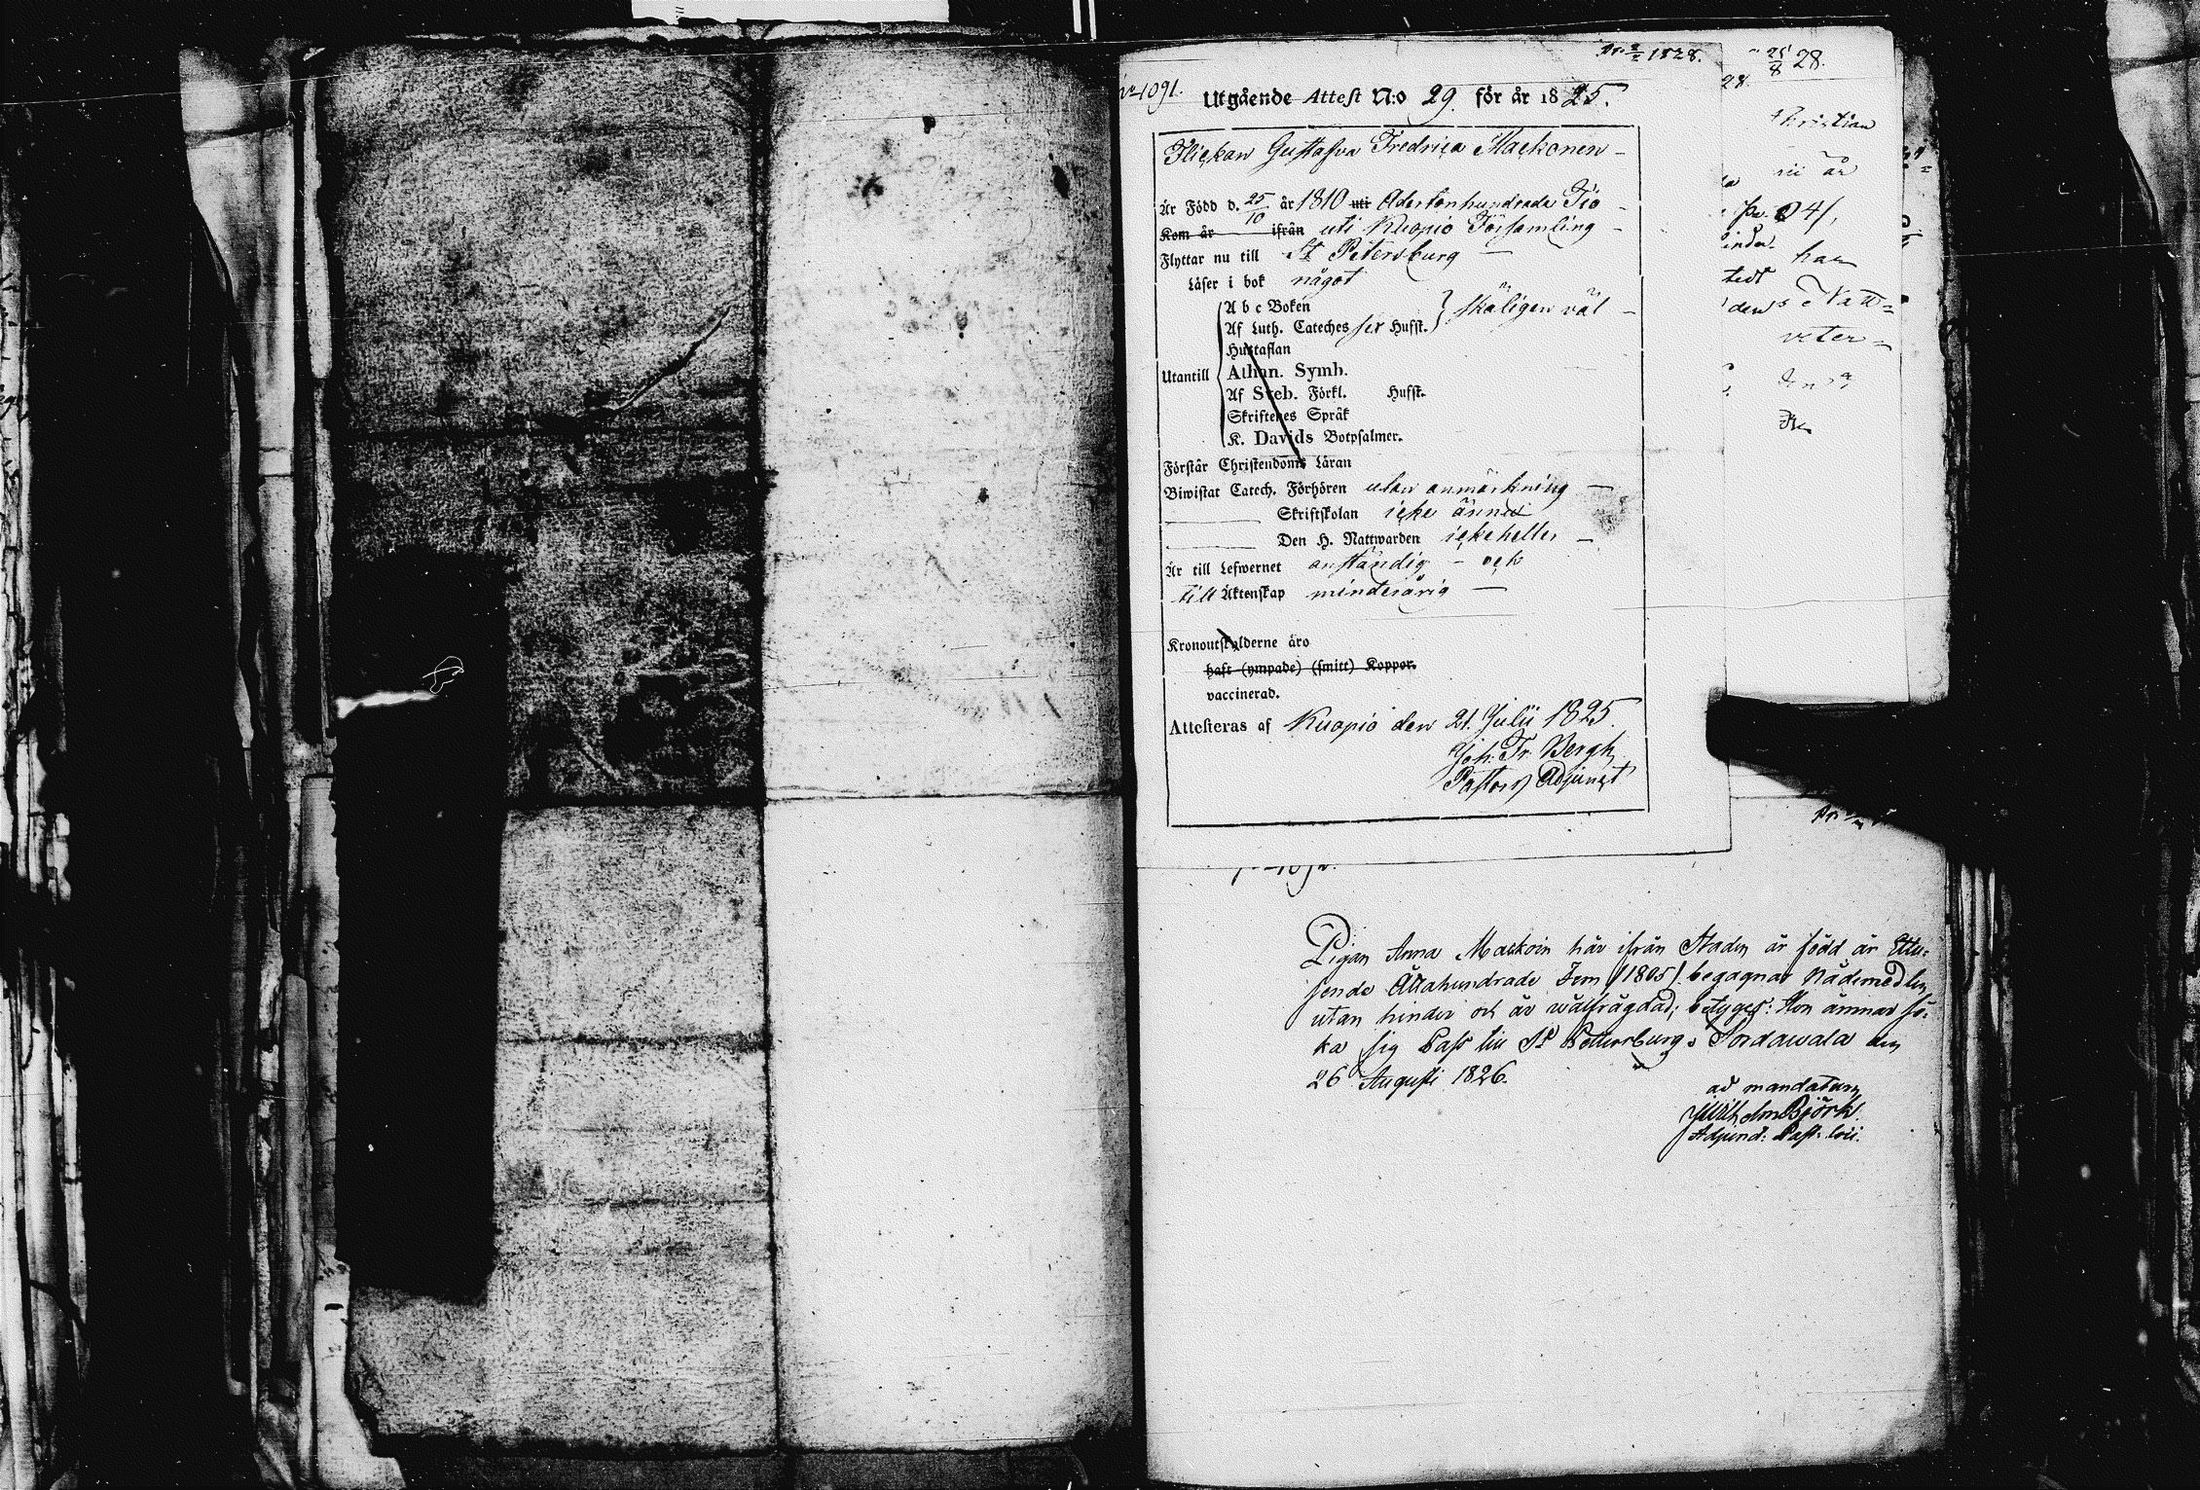 No 1091.
Utgående Attest N:o 29. för år 1825.
Flickan Gustafva Fredrica Maekonen
Är Född d. 25/10 år 1810 uti Adertonhundrade Tio
Kom år ifrån uti Kuopio Församling
Flyttar nu till St Petersburg
Läser i bok något
A b c Boken
Af Luth. Cateches sex Hufst. } skäligen väl
Hustaflan
Utantill Athan. Symb.
Af Sveb. Förkl. Hufst.
Skriftenes Språk
K. Davids Botpsalmer.
Förstår Christendoms Läran
Biwistat Catech. Förhören utan anmärkning
Skriftskolan icke ännu
Den H. Nattwarden icke heller
Är till Lefwernet anständig - och
till Äktenskap minderårig
Kronoutskylderne äro
haft (ympade) (smitt) Koppor.
vaccinerad.
Attesteras af Kuopio den 21. Julii 1825.
Joh. Fr. Bergh
Pastors Adjunct
1828.
25/8 28.
28.
Christian
år
han
den
Pigan Anna Maekoin här ifrån Staden är född år Ettu-
sende Åttahundrade Fem /1805/ begagnar Nådemedlen
utan hinder och är wälfrägdad; betygas: Hon ämnar sö-
ka sig Pass till St Pettersburg. Sordawala den
26 Augusti 1826.
ad mandatum
Wilhelm Björk
Adjunct: Past: loci.